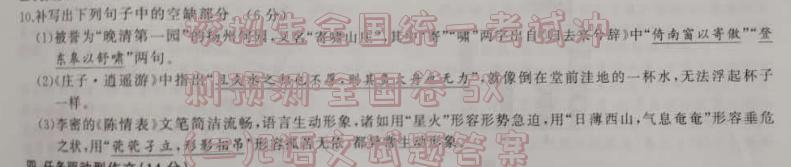 10.补写出下列句子中的空缺部分。(6分)
(1)被誉为“晚清第一园”的扬州何园,又名“寄啸山庄”,其中“寄”“啸”两字出自《归去来兮辞》中“倚南窗以寄傲”“登
东皋以舒啸”两句。
(2)《庄子·逍遥游》中指出“且夫水之积也不厚,则其负大舟也无力”,就像倒在堂前洼地的一杯水,无法浮起杯子
一样。
(3)李密的《陈情表》文笔简洁流畅,语言生动形象,诸如用“星火”形容形势急迫,用“日薄西山,气息奄奄”形容垂危
之状,用“茕茕孑立,形影相吊”形容孤苦无依,都异常生动形象。
全国统一考试冲
刺预测·全国卷 5X
(一)化语文试题答案